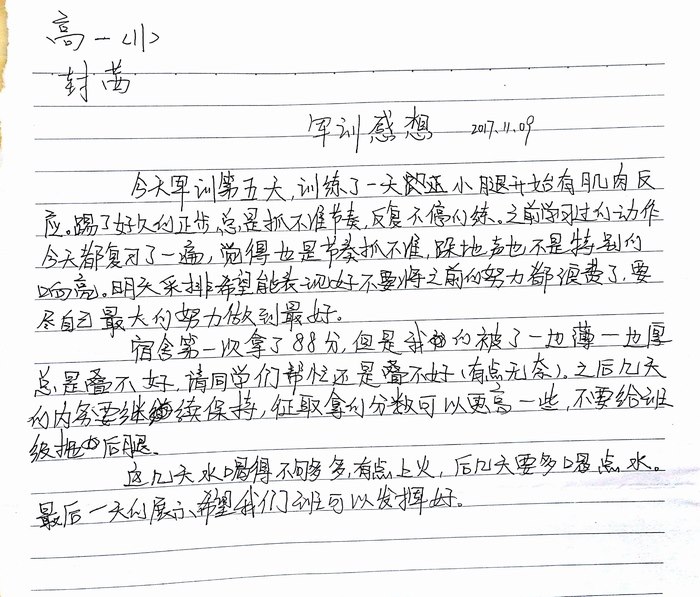 高一<11>
封茜
军训感想 2017.11.09
今天军训第五天,训练了一天小腿开始有肌肉反
应。踢了好久的正步,总是抓不准节奏,反复不停的练。之前学习过的动作
今天都复习了一遍,觉得也是节奏抓不准,跺地声也不是特别的
响亮。明天采排希望能表现好不要将之前的努力都浪费了,要
尽自己最大的努力做到最好。
宿舍第一次拿了88分,但是我的被子一边薄一边厚
总是叠不好,请同学们帮忙还是叠不好(有点无奈)。之后几天
的内务要继续保持,征取拿的分数可以更高一些,不要给班
级拖后腿。
这几天水喝得不够多,有点上火,后几天要多喝点水。
最后一天的展示,希望我们班可以发挥好。